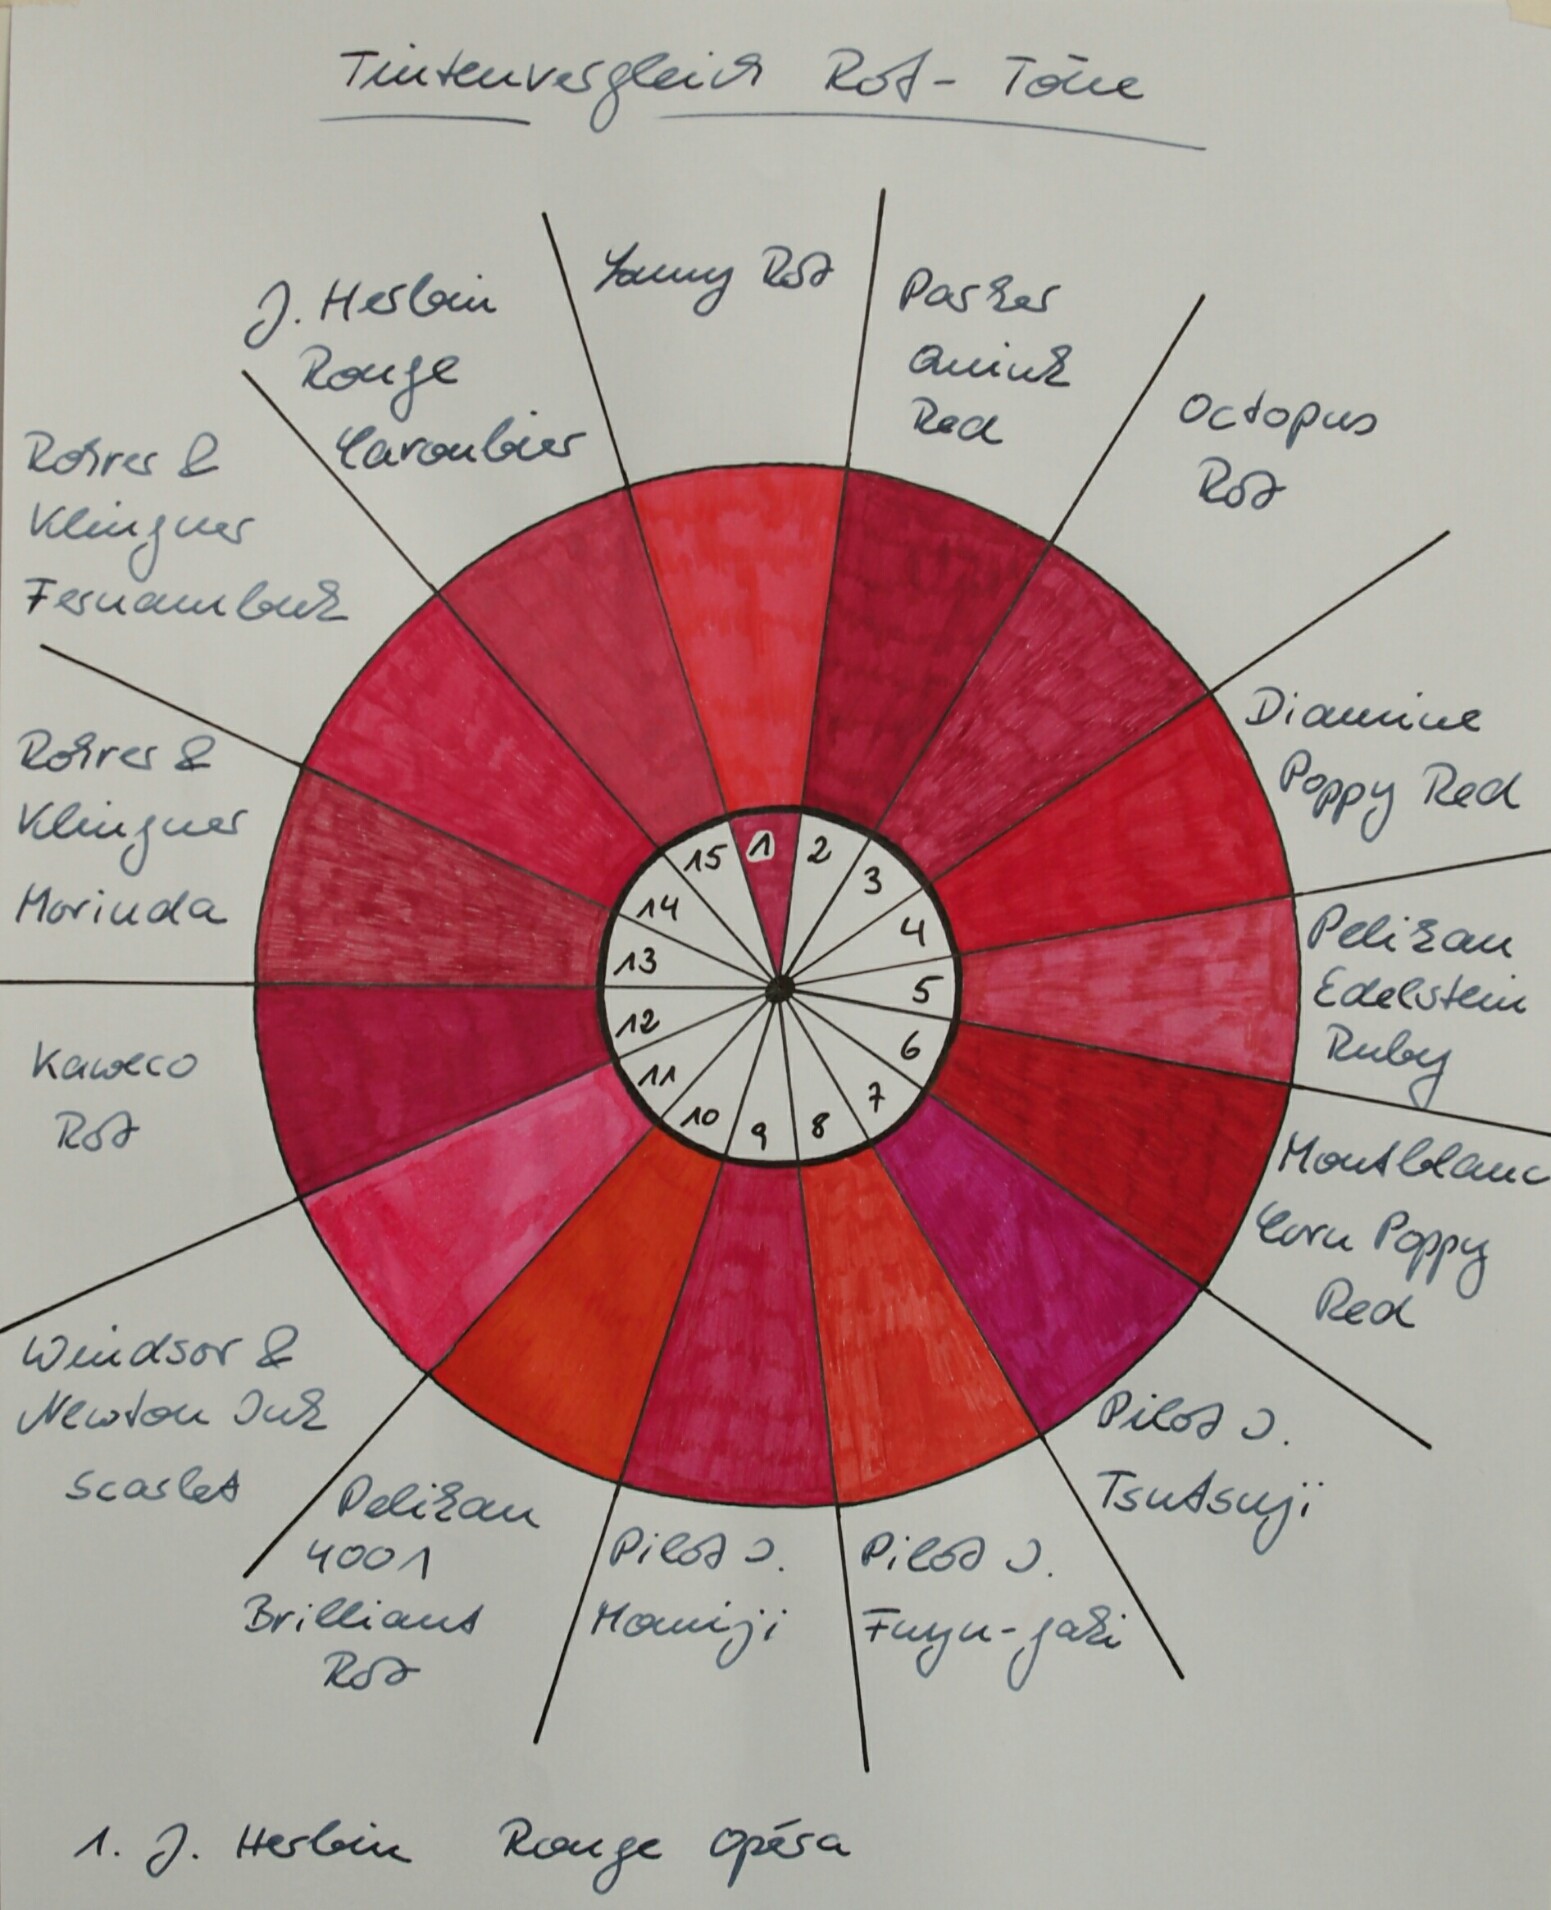 Tintenvergleich Rot-Töne
Lamy Rot
Parker
Quink
Red
Octopus
Rot
Diamine
Poppy Red
Pelikan
Edelstein
Ruby
Montblanc
Corn Poppy
Red
Pilot I.
Tsutsuji
Pilot I.
Fuyu-gaki
Pilot I.
Momiji
Pelikan
4001
Brilliant
Rot
Windsor &
Newton Ink
Scarlet
Kaweco
Rot
Rohrer &
Klingner
Morinda
Rohrer &
Klingner
Fernambuk
J. Herbin
Rouge
Caroubier
1
2
3
4
5
6
7
8
9
10
11
12
13
14
15
1. J. Herbin Rouge Opéra